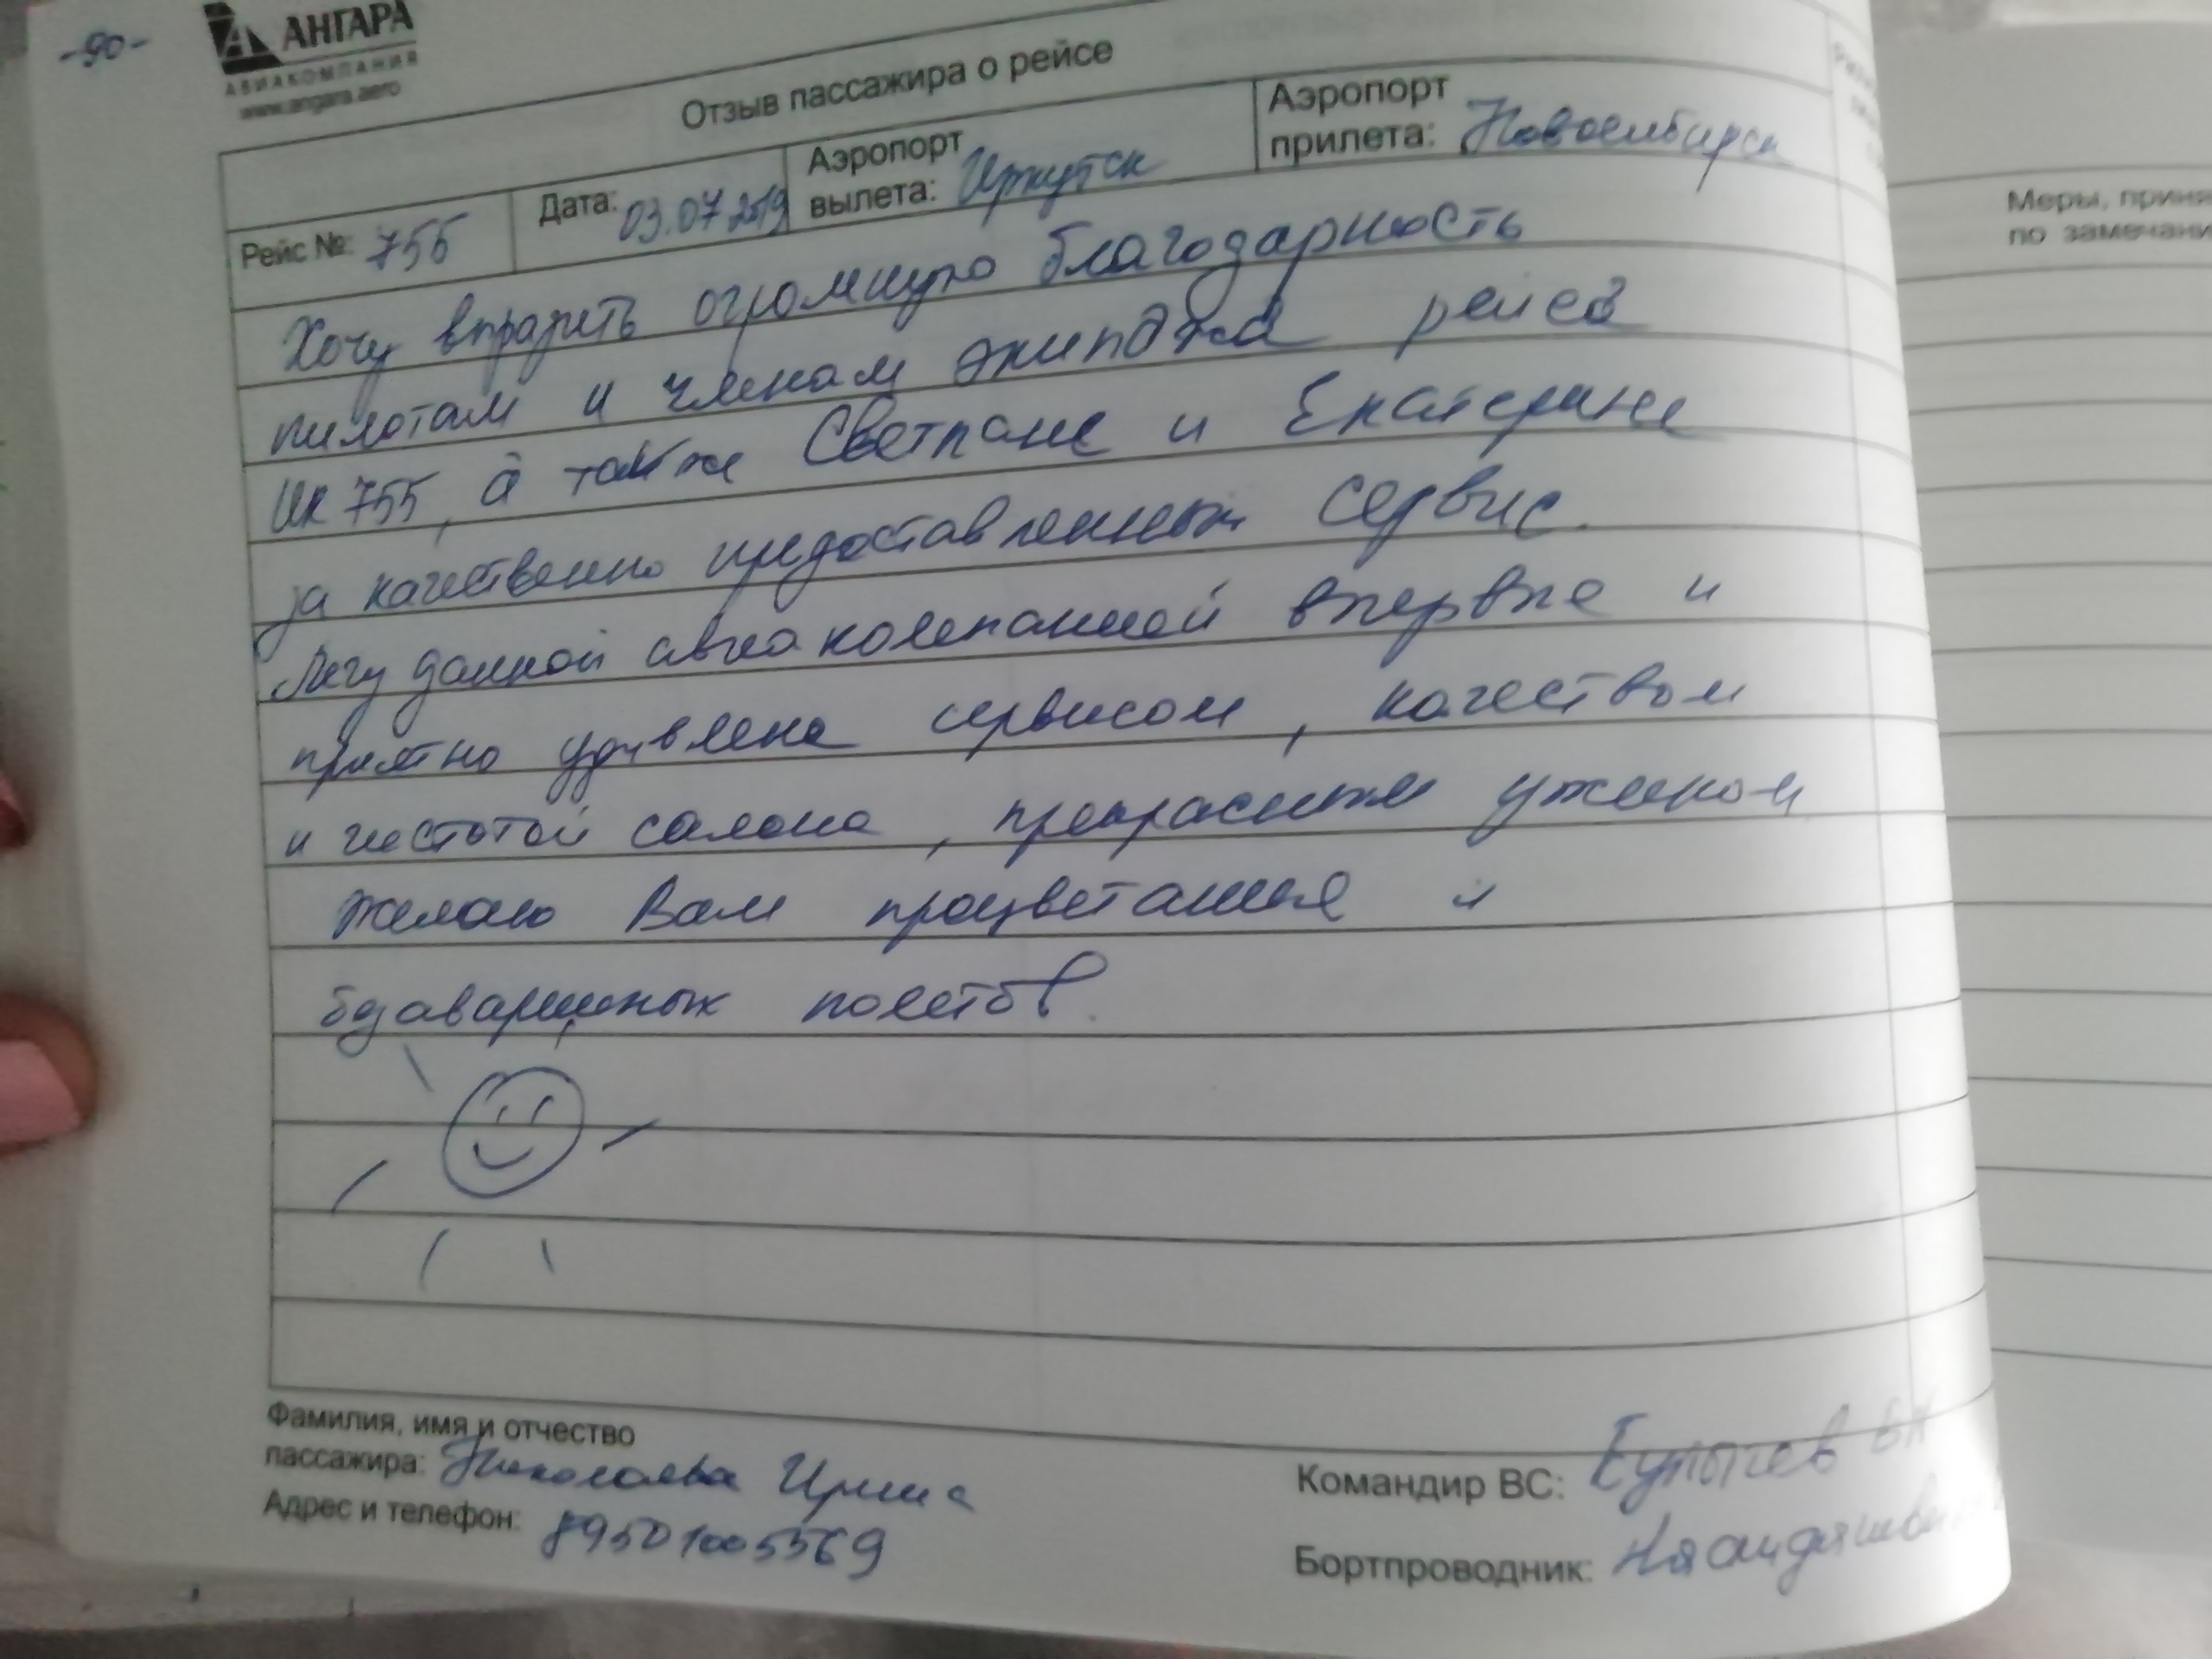 -90-
АНГАРА
АВИАКОМПАНИЯ
www.angara.aero
Отзыв пассажира о рейсе
Рейс №: 755 Дата: 03.07.2019 Аэропорт вылета: Иркутск Аэропорт прилета: Новосибирск
Хочу выразить огромную благодарность
пилотам и членам экипажа рейса
ИК 755, а также Светлане и Екатерине
за качественно предоставленный сервис.
Лечу данной авиакомпанией впервые и
приятно удивлена сервисом, качеством
и чистотой салона, прекрасным ужином
Желаю Вам процветания и
безаварийных полетов.
Фамилия, имя и отчество
пассажира: Николаева Ирина
Адрес и телефон: 89501005569
Командир ВС:
Бортпроводник:
Меры, приня
по замечани